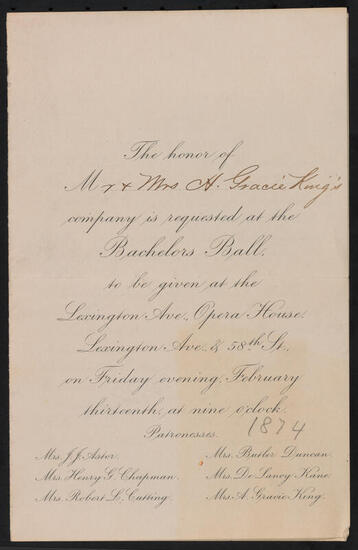 The honor of
Mr & Mrs A. Gracie King's
company is requested at the
Bachelors Ball,
to be given at the
Lexington Ave., Opera House,
Lexington Ave. & 58th St.,
on Friday evening, February
thirteenth, at nine o'clock.
1874
Patronesses.
Mrs. J. J. Astor.
Mrs. Henry G. Chapman.
Mrs. Robert L. Cutting.
Mrs. Butler Duncan.
Mrs. De Lancy Kane.
Mrs. A. Gracie King.